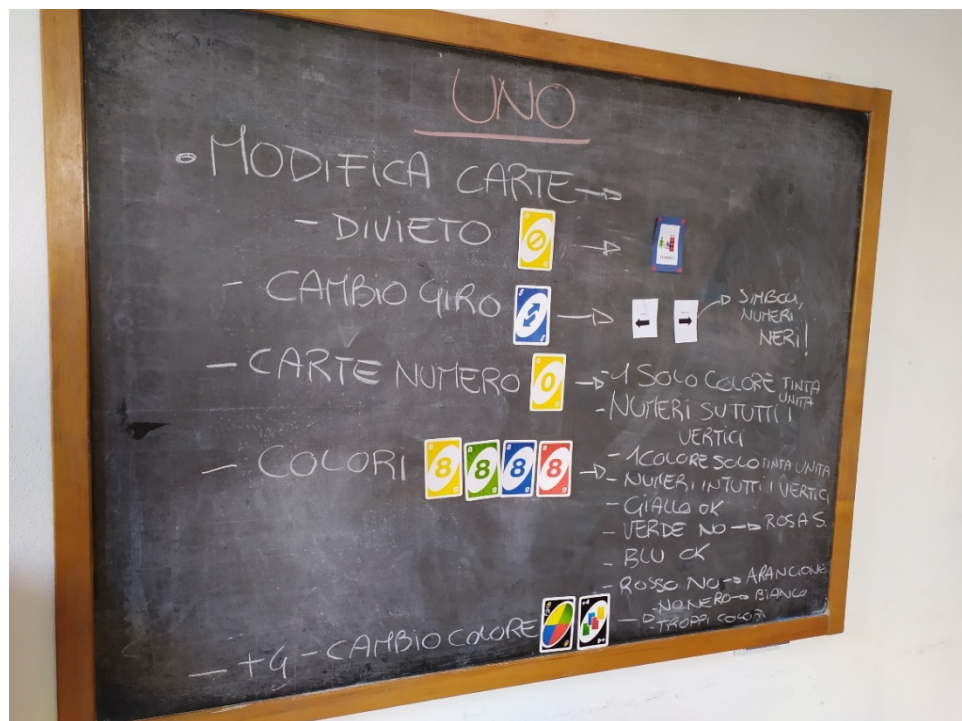 UNO
• MODIFICA CARTE →
- DIVIETO →
- CAMBIO GIRO → → SIMBOLI,
NUMERI
NERI!
- CARTE NUMERO 0 → - 1 SOLO COLORE TINTA
UNITA
- NUMERI SU TUTTI I
VERTICI
- COLORI 8 8 8 8 → - 1 COLORE SOLO TINTA UNITA
- NUMERI IN TUTTI I VERTICI
- GIALLO OK
- VERDE NO → ROSA S.
- BLU OK
- ROSSO NO → ARANCIONE
- +4 - CAMBIO COLORE → - NO NERO → BIANCO
- TROPPI COLORI